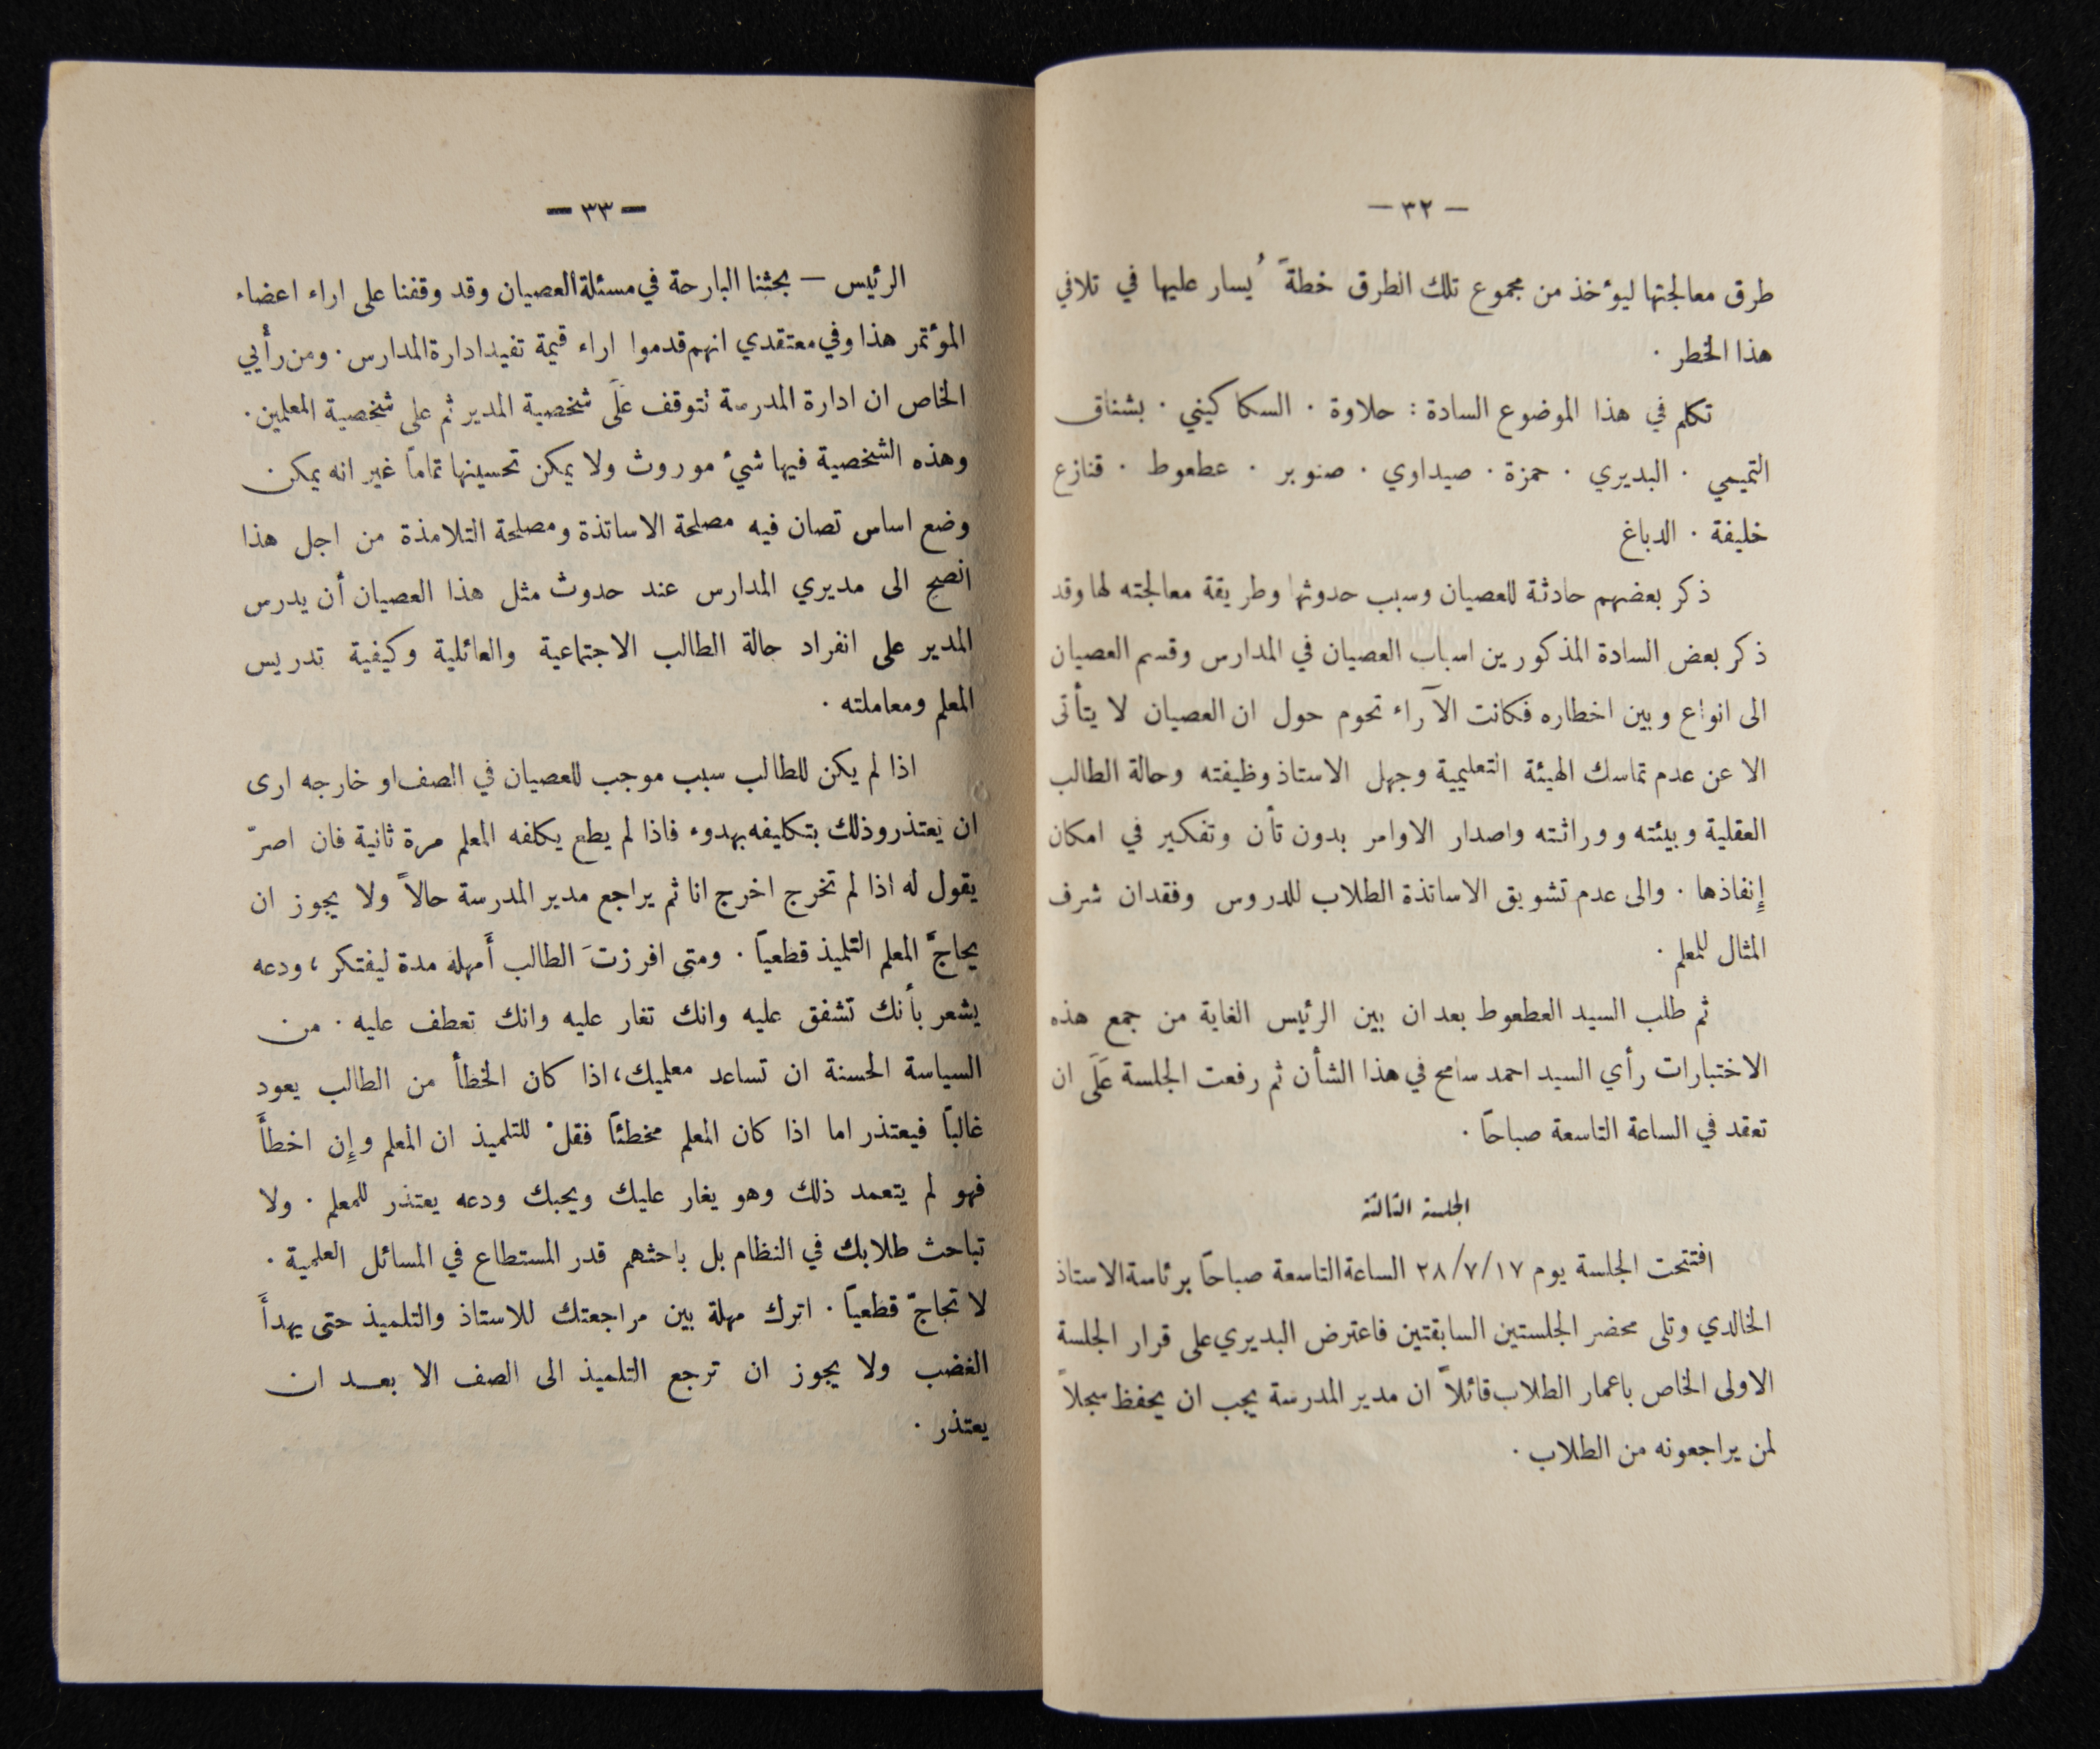 — ٣٢ —
طرق معالجتها ليؤخذ من مجموع تلك الطرق خطةً يُسار عليها في تلافي
هذا الخطر ·
تكلم في هذا الموضوع السادة : حلاوة · السكاكيني · بشناق
التميمي · البديري · حمزة · صيداوي · صنوبر · عطعوط · قنازع
خليفة · الدباغ
ذكر بعضهم حادثة للعصيان وسبب حدوثها وطريقة معالجته لها وقد
ذكر بعض السادة المذكورين اسباب العصيان في المدارس وقسم العصيان
الى انواع وبين اخطاره فكانت الآراء تحوم حول ان العصيان لا يتأتى
الا عن عدم تماسك الهيئة التعليمية وجهل الاستاذ وظيفته وحالة الطالب
العقلية وبيئته ووراثته واصدار الاوامر بدون تأن وتفكير في امكان
إنفاذها · والى عدم تشويق الاساتذة الطلاب للدروس وفقدان شرف
المثال للمعلم ·
ثم طلب السيد العطعوط بعد ان بين الرئيس الغاية من جمع هذه
الاختبارات رأي السيد احمد سامح في هذا الشأن ثم رفعت الجلسة عَلَى ان
تعقد في الساعة التاسعة صباحاً ·
الجلسة الثالثة
افتتحت الجلسة يوم ٢٨/٧/١٧ الساعة التاسعة صباحاً برئاسة الاستاذ
الخالدي وتلى محضر الجلستين السابقتين فاعترض البديري على قرار الجلسة
الاولى الخاص باعمار الطلاب قائلاً ان مدير المدرسة يجب ان يحفظ سجلاً
لمن يراجعونه من الطلاب ·
— ٣٣ —
الرئيس — بحثنا البارحة في مسئلة العصيان وقد وقفنا على اراء اعضاء
المؤتمر هذا وفي معتقدي انهم قدموا اراء قيمة تفيد ادارة المدارس · ومن رأيي
الخاص ان ادارة المدرسة تتوقف عَلَى شخصية المدير ثم على شخصية المعلمين ·
وهذه الشخصية فيها شيء موروث ولا يمكن تحسينها تماماً غير انه يمكن
وضع اساس تصان فيه مصلحة الاساتذة ومصلحة التلامذة من اجل هذا
انصح الى مديري المدارس عند حدوث مثل هذا العصيان أن يدرس
المدير على انفراد حالة الطالب الاجتماعية والعائلية وكيفية تدريس
المعلم ومعاملته ·
اذا لم يكن للطالب سبب موجب للعصيان في الصف او خارجه ارى
ان يَعتذر وذلك بتكليفه بهدوء فاذا لم يطع يكلفه المعلم مرة ثانية فان اصرّ
يقول له اذا لم تخرج اخرج انا ثم يراجع مدير المدرسة حالاً ولا يجوز ان
يحاجَّ المعلم التلميذ قطعياً · ومتى افرزتَ الطالب أَمهله مدة ليفتكر ، ودعه
يشعر بأنك تشفق عليه وانك تغار عليه وانك تعطف عليه · من
السياسة الحسنة ان تساعد معلميك، اذا كان الخطأ من الطالب يعود
غالباً فيعتذر اما اذا كان المعلم مخطئاً فقلْ للتلميذ ان المعلم وإن اخطأَ
فهو لم يتعمد ذلك وهو يغار عليك ويحبك ودعه يعتذر للمعلم · ولا
تباحث طلابك في النظام بل باحثهم قدر المستطاع في المسائل العلمية ·
لا تحاجّ قطعياً · اترك مهلة بين مراجعتك للاستاذ والتلميذ حتى يهدأَ
الغضب ولا يجوز ان ترجع التلميذ الى الصف الا بعد ان
يعتذر ·